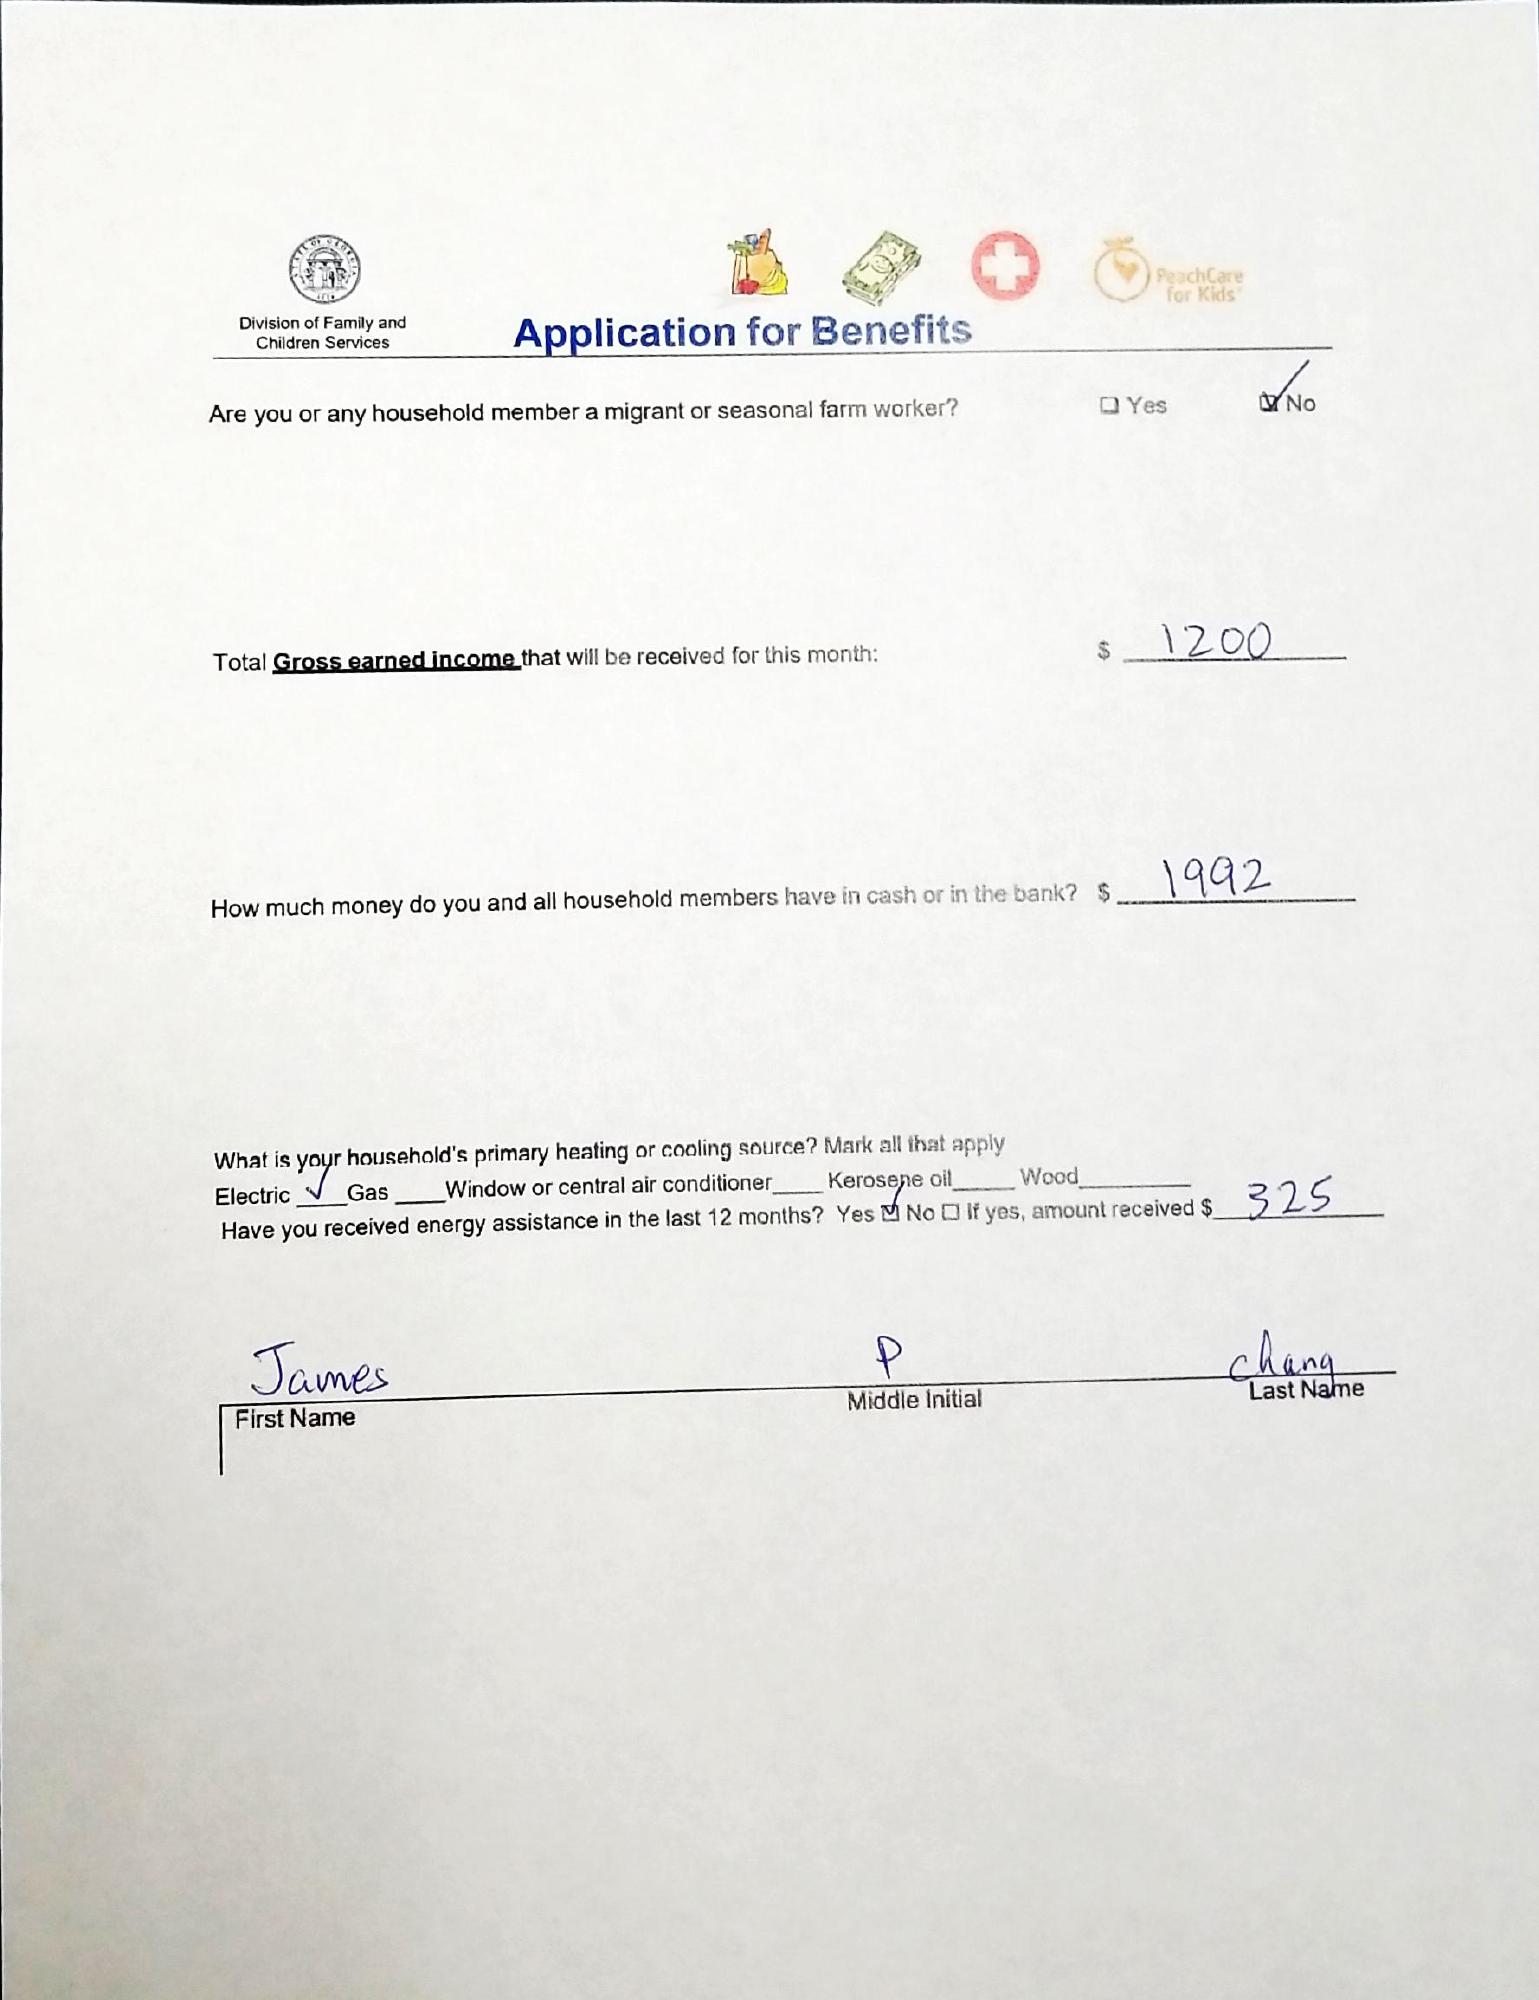 STATE OF GEORGIA
1776
Division of Family and
Children Services
PeachCare
for Kids
Application for Benefits
Are you or any household member a migrant or seasonal farm worker? ☐ Yes ☑ No
Total Gross earned income that will be received for this month: $ 1200
How much money do you and all household members have in cash or in the bank? $ 1992
What is your household's primary heating or cooling source? Mark all that apply
Electric ✓ Gas ____Window or central air conditioner____ Kerosene oil_____ Wood_________
Have you received energy assistance in the last 12 months? Yes ☑ No ☐ If yes, amount received $ 325
James P Chang
First Name Middle Initial Last Name